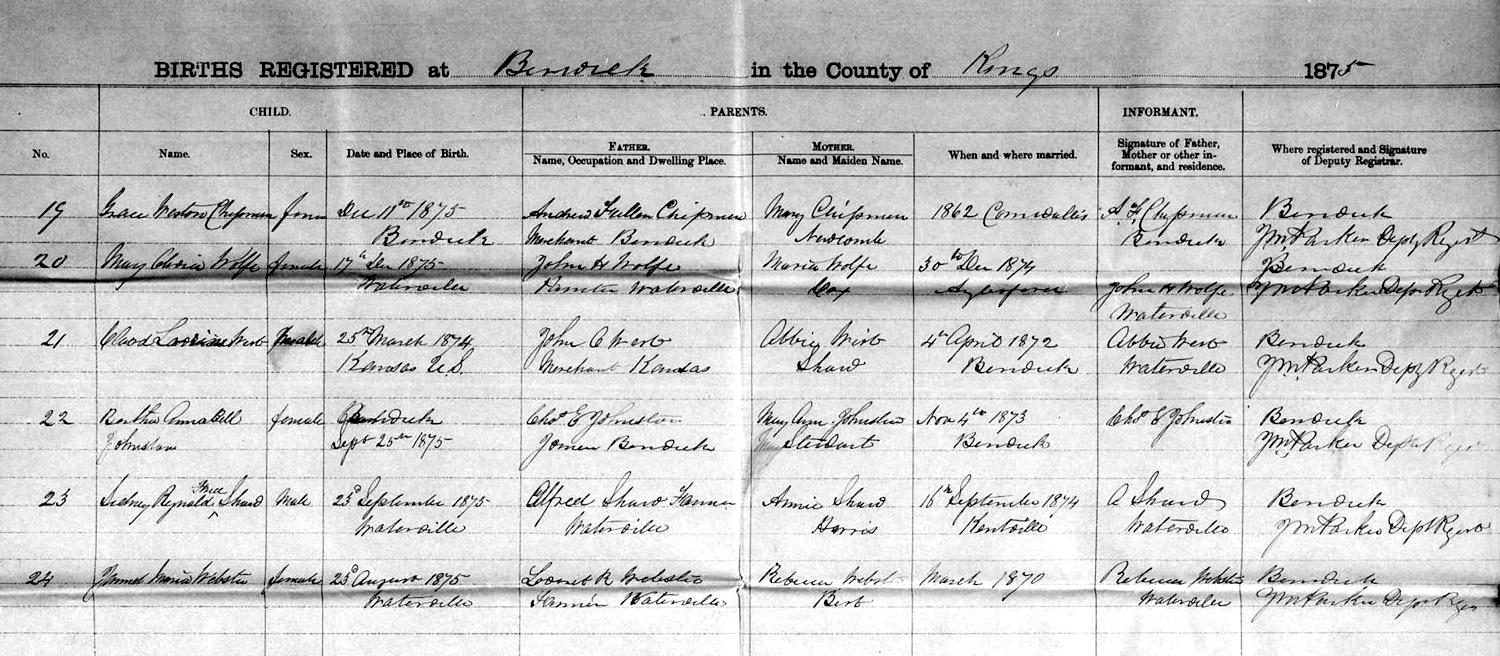 BIRTHS REGISTERED at Berwick in the County of Kings 1875
CHILD. PARENTS. INFORMANT.
No. Name. Sex. Date and Place of Birth. FATHER. Name, Occupation and Dwelling Place. MOTHER. Name and Maiden Name. When and where married. Signature of Father, Mother or other informant, and residence. Where registered and Signature of Deputy Registrar.
19 Grace Weston Chipman Dec 11th 1875 Andrew Fullen Chipman Mary Chipman 1862 Cornwallis A. F. Chipman Berwick
Berwick Merchant Berwick Newcomb Berwick Jm Parker Depty Regist
20 Mary Wolfe female 17th Dec 1875 John H Wolfe Maria Wolfe 30th Dec 1874 Berwick
Waterville Waterville Cox Aylesford John H Wolfe Jm Parker Depty Regist
Waterville
21 Claud West 25th March 1874 John C West Abbie West 4th April 1872 Abbie West Berwick
Kansas U.S. Merchant Kansas Shaw Berwick Waterville Jm Parker Depty Regist
22 Bertha Annabell female Berwick Chas E Johnston Mary Johnston Nov 4th 1873 Chas E Johnston Berwick
Johnston Sept 25th 1875 Berwick Stewart Berwick Jm Parker Dept Regist
23 Sidney Reynold Shaw Male 23d September 1875 Alfred Shaw Farmer Annie Shaw 16th September 1874 A Shaw Berwick
Waterville Waterville Harris Kentville Waterville Jm Parker Dept Regist
24 Maria Webster female 23d August 1875 R Webster Rebecca Webst March 1870 Rebecca Webster Berwick
Waterville Farmer Waterville Waterville Jm Parker Dept Regis